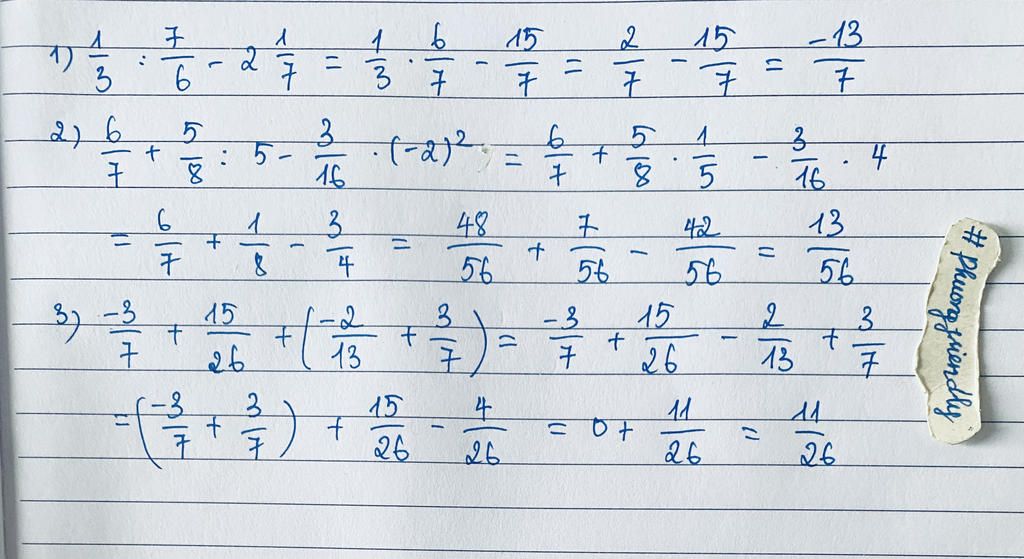 1) 1/3 : 7/6 - 2 1/7 = 1/3 . 6/7 - 15/7 = 2/7 - 15/7 = -13/7
2) 6/7 + 5/8 : 5 - 3/16 . (-2)² = 6/7 + 5/8 . 1/5 - 3/16 . 4
= 6/7 + 1/8 - 3/4 = 48/56 + 7/56 - 42/56 = 13/56
3) -3/7 + 15/26 + (-2/13 + 3/7) = -3/7 + 15/26 - 2/13 + 3/7
= (-3/7 + 3/7) + 15/26 - 4/26 = 0 + 11/26 = 11/26
#phuongfriendly